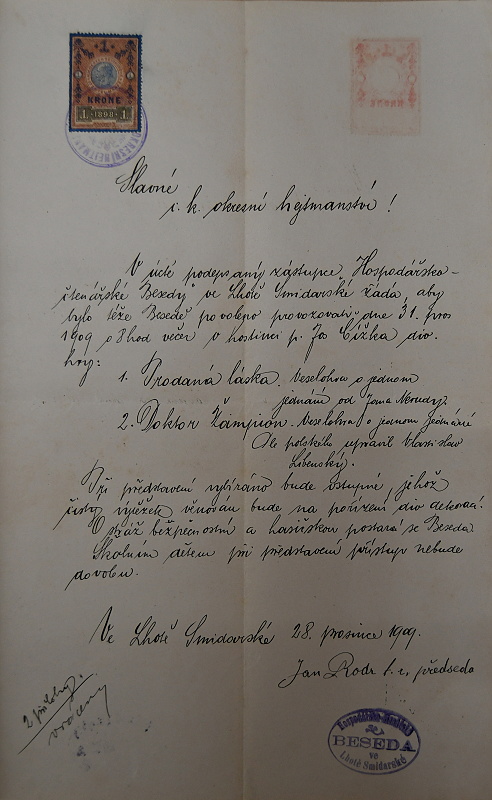 1
KRONE
1 1898 1
Slavné
c. k. okresní hejtmanství!
V úctě podepsaný zástupce „Hospodářsko-
čtenářské Besedy" ve Lhotě Smidarské žádá, aby
bylo téže Besedě povoleno provozovati dne 31. pros
1909 o 8 hod večer v hostinci p. Jos Čížka div.
hry:
1. Prodaná láska. Veselohra o jednom
jednání od Jana Nerudy.
2. Doktor Žampion. Veselohra o jednom jednání
Dle polského upravil Vlastislav
Libenský.
Při představení vybíráno bude vstupné, jehož
čistý výtěžek věnován bude na pořízení div dekorací.
O stráž bezpečnostní a hasičskou postará se Beseda
Školním dětem při představení přístup nebude
dovolen.
Ve Lhotě Smidarské 28. prosince 1909.
Jan Rodr t. č. předseda
2 přílohy
vráceny
BESEDA
ve
Lhotě Smidarské